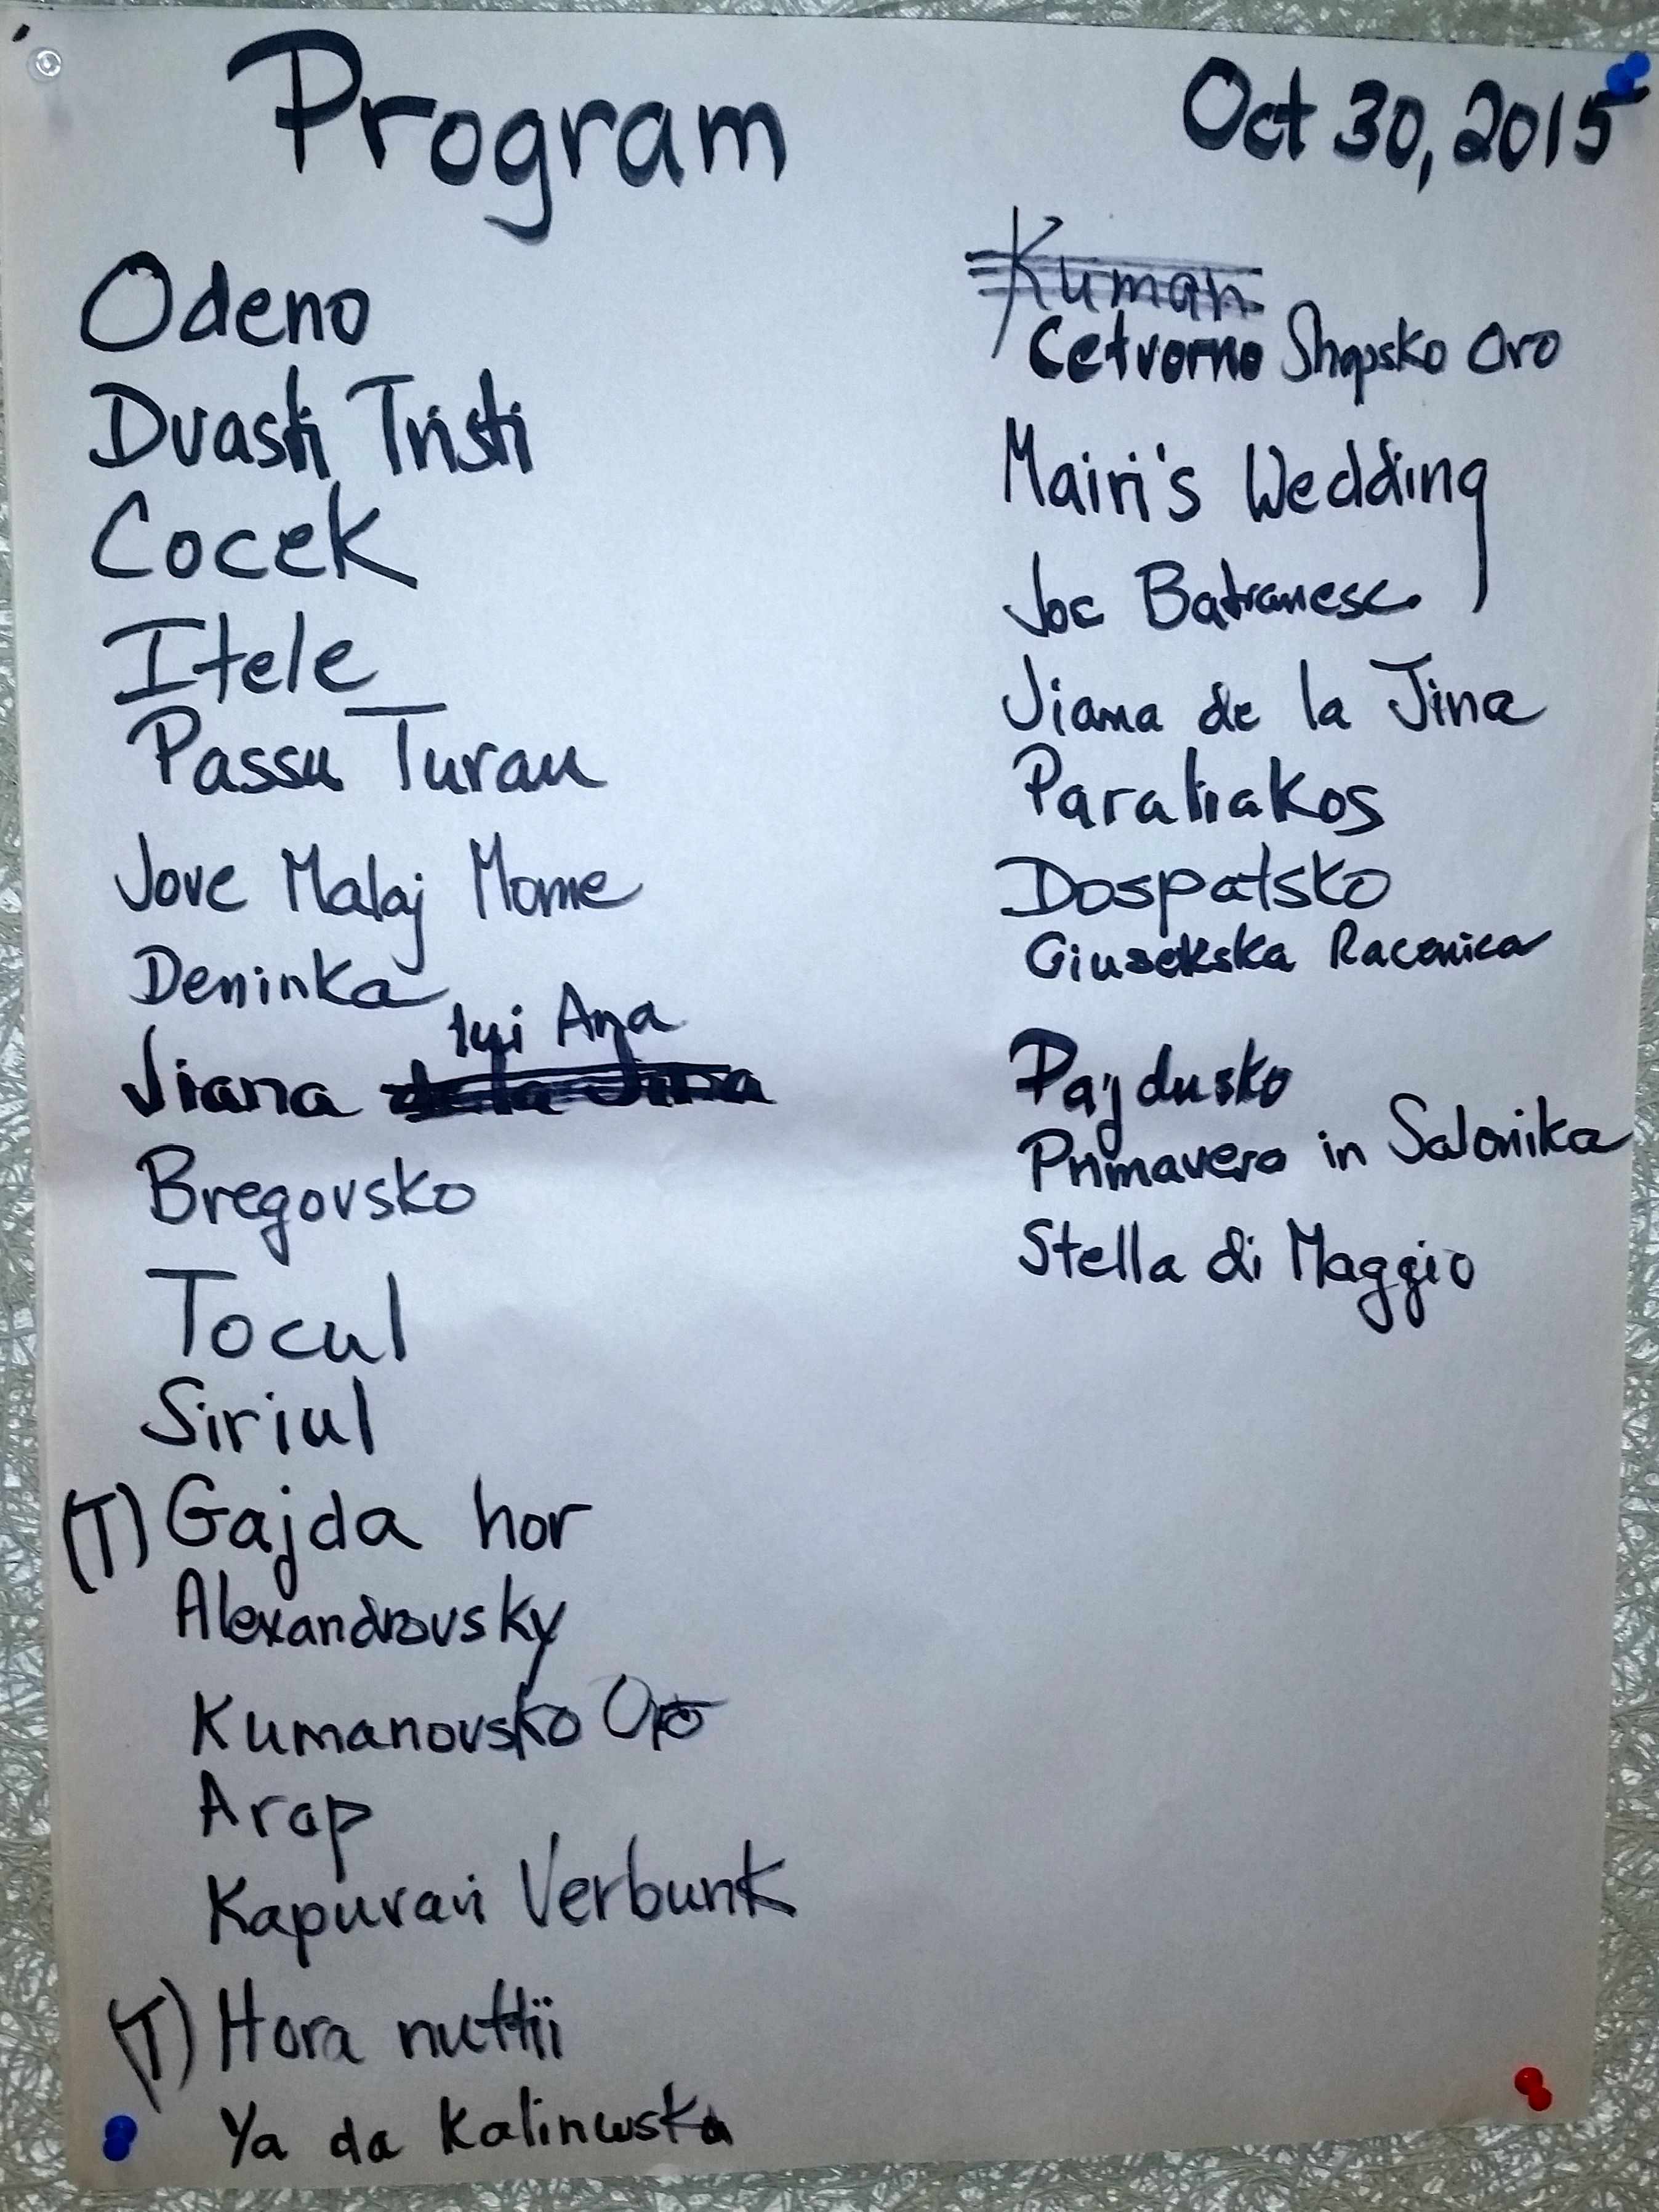 Program
Oct 30, 2015
Odeno
Dvasti Tristi
Cocek
Itele
Passu Turau
Jove Malaj Mome
Deninka
lui Ana
Jiana de la Jina
Bregovsko
Tocul
Siriul
(T) Gajda hor
Alexandrovsky
Kumanovsko Oro
Arap
Kapuvari Verbunk
(T) Hora nuttii
Ya da Kalinuska
Kuman
Cetvorno Shopsko Oro
Mairi's Wedding
Joc Batranesc
Jiana de la Jina
Paraliakos
Dospatsko
Giusekska Racenica
Pajdusko
Primavera in Salonika
Stella di Maggio